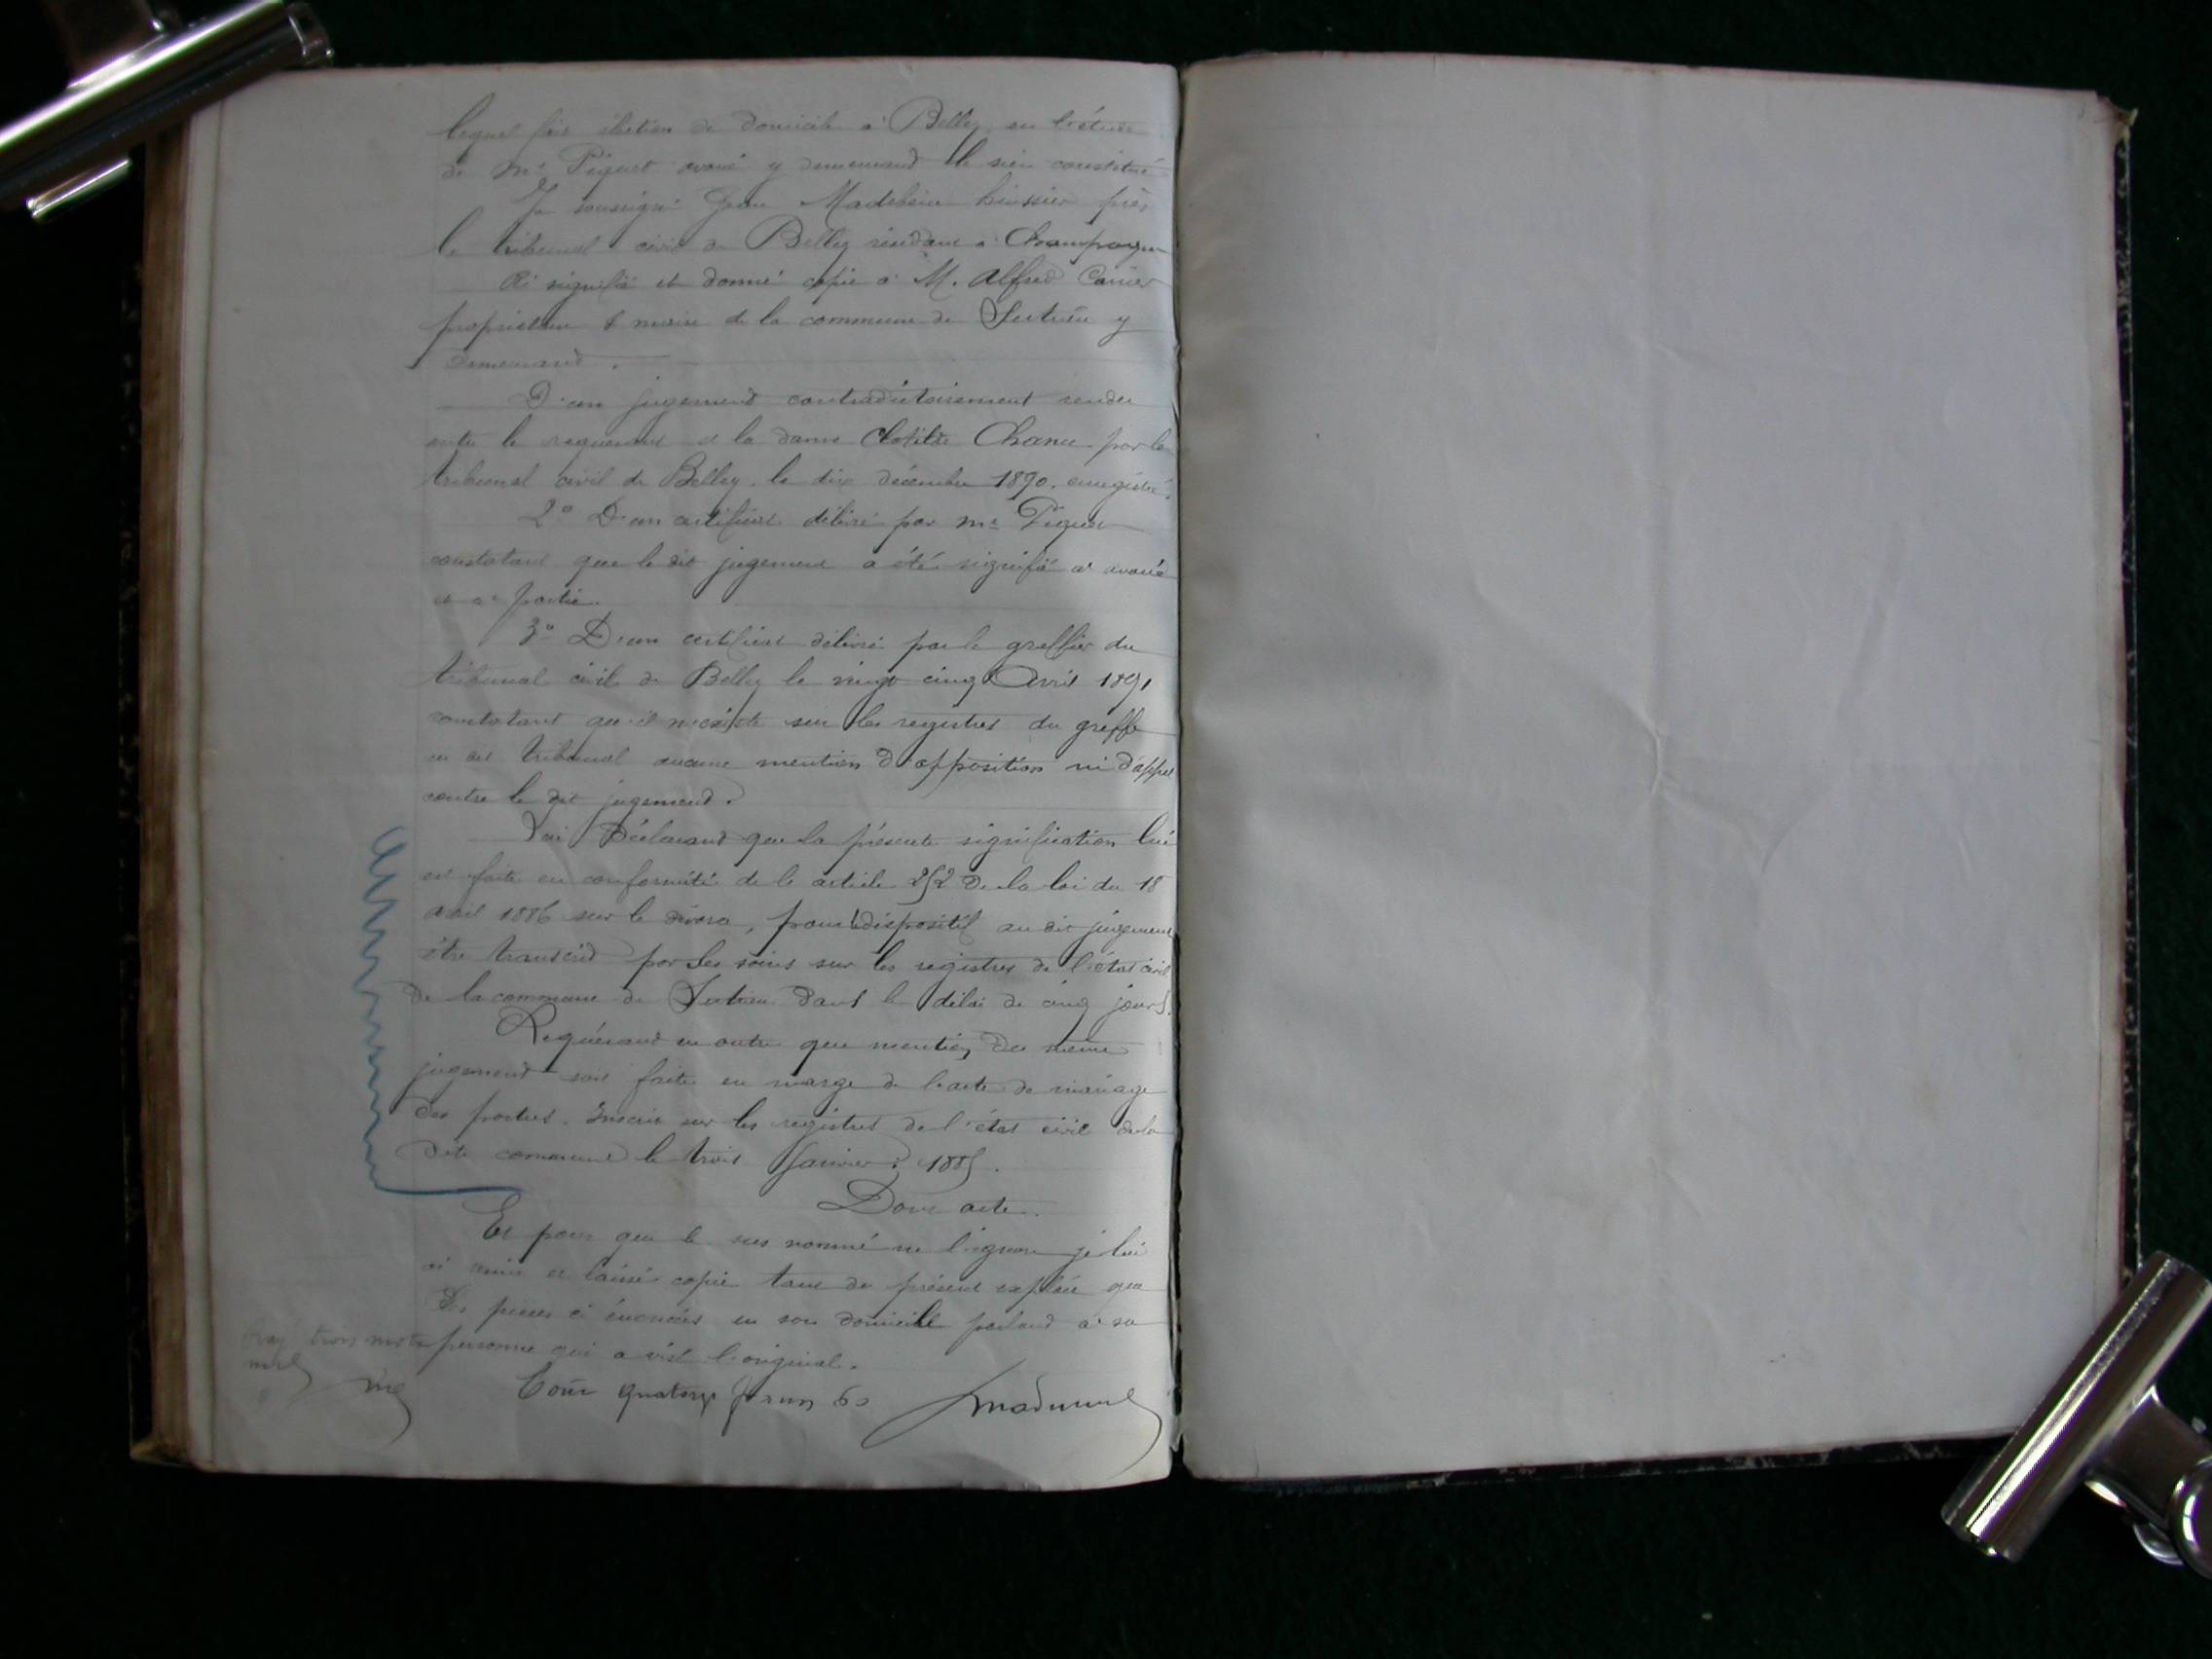 lequel fait élection de domicile à Belley, en l'étude
de Me Piguet avoué y demeurant le sien constitué
Je soussigné Jean Madelaine huissier près
le tribunal civil de Belley résidant à Champagne
Ai signifié et donné copie à M. Alfred
propriétaire & maire de la commune de y
demeurant.
D'un jugement contradictoirement rendu
entre le requérant et la dame Clotilde Chanu par le
tribunal civil de Belley le dix décembre 1890, enregistré.
2o D'un certificat délivré par Me Piguet
constatant que le dit jugement a été signifié à avoué
et à partie.
3o D'un certificat délivré par le greffier du
tribunal civil de Belley le vingt cinq Avril 1891
constatant qu'il n'existe sur les registres du greffe
tribunal aucune mention d'opposition ni d'appel
contre le dit jugement.
Lui Déclarant que la présente signification lui
est faite en conformité de le article 252 de la loi du 18
avril 1886 sur le divorce, pour le dispositif au dit jugement
être transcrit par ses soins sur les registres de l'état civil
de la commune de dans le délai de cinq jours.
Requérant en outre que mention du même
jugement soit faite en marge de l'acte de mariage
des parties. Inscrit sur les registres de l'état civil de la
dite commune le trois Janvier 1885.
Dont acte.
Et pour que le sus nommé ne l'ignore je lui
ai remis et laissé copie tant du présent exploit que
des pièces ci énoncées en son domicile parlant à sa
Rayé trois mots personne qui a visé l'original.
nuls
Coût quatorze francs 60